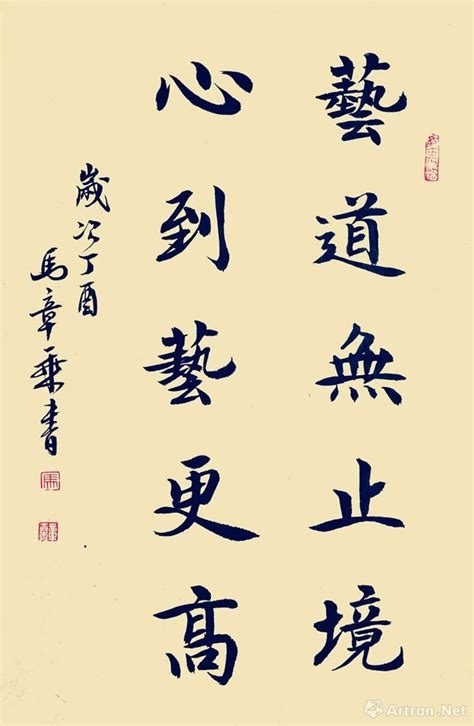 藝道無止境
心到藝更高
歲次丁酉
馬章乘書
Artron.Net